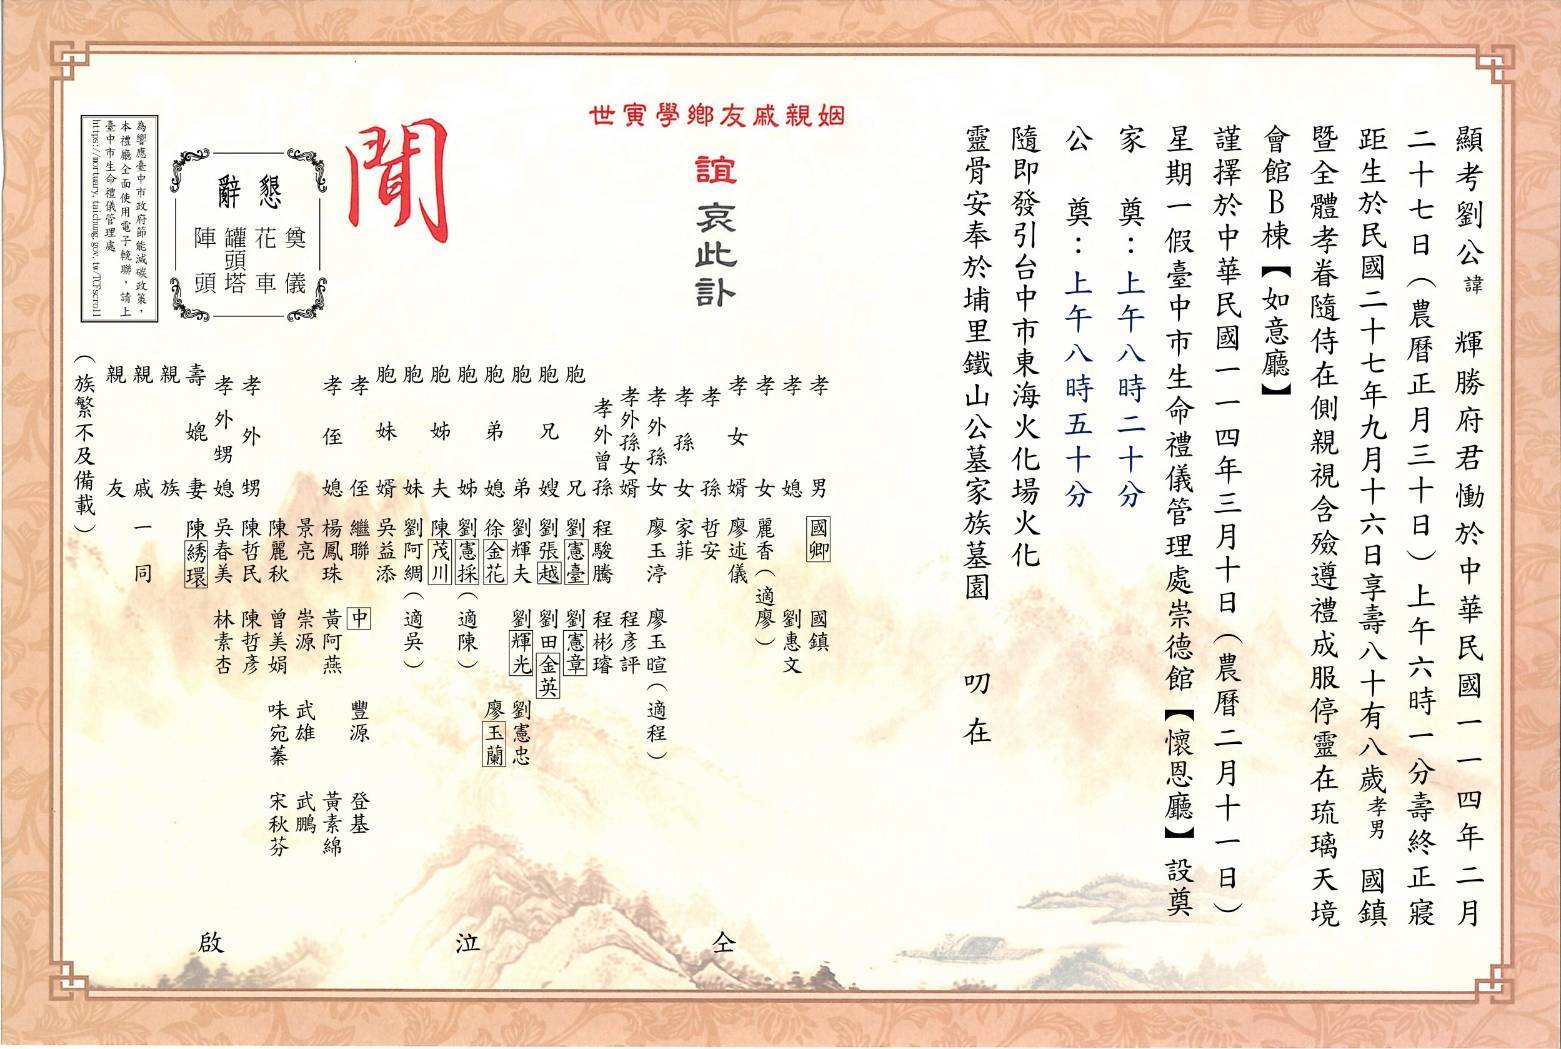 顯考劉公諱　輝勝府君慟於中華民國一一四年二月
二十七日（農曆正月三十日）上午六時一分壽終正寢
距生於民國二十七年九月十六日享壽八十有八歲孝男　國鎮
暨全體孝眷隨侍在側親視含殮遵禮成服停靈在琉璃天境
會館B棟【如意廳】
謹擇於中華民國一一四年三月十日（農曆二月十一日）
星期一假臺中市生命禮儀管理處崇德館【懷恩廳】設奠
家　奠：上午八時二十分
公　奠：上午八時五十分
隨即發引台中市東海火化場火化
靈骨安奉於埔里鐵山公墓家族墓園　叨在
姻親戚友鄉學寅世
誼哀此訃
聞
孝男　國卿　國鎮
孝媳　劉惠文
孝女　麗香（適廖）
孝女婿　廖述儀
孝孫　哲安
孝孫女　家菲
孝外孫女　廖玉渟　廖玉暄（適程）
孝外孫女婿　程彥評
孝外曾孫　程駿騰　程彬璿
胞兄　劉憲臺　劉憲章
胞兄嫂　劉張越　劉田金英
胞弟　劉輝夫　劉輝光　劉憲忠
胞弟媳　徐金花　廖玉蘭
胞姊　劉憲採（適陳）
胞姊夫　陳茂川
胞妹　劉阿綢（適吳）
胞妹婿　吳益添
孝侄　繼聯　中　豐源　登基
景亮　崇源　武雄　武鵬
孝侄媳　楊鳳珠　黃阿燕　黃素綿
陳麗秋　曾美娟　味宛蓁　宋秋芬
孝外甥　陳哲民　陳哲彥
孝外甥媳　吳春美　林素杏
壽媲妻　陳綉環
親族
親戚　一同
親友
（族繁不及備載）
仝　泣　啟
懇辭
奠儀
花車
罐頭塔
陣頭
為響應臺中市政府節能減碳政策，
本禮廳全面使用電子輓聯，請上
臺中市生命禮儀管理處
https://mortuary.taichung.gov.tw/TCFscroll